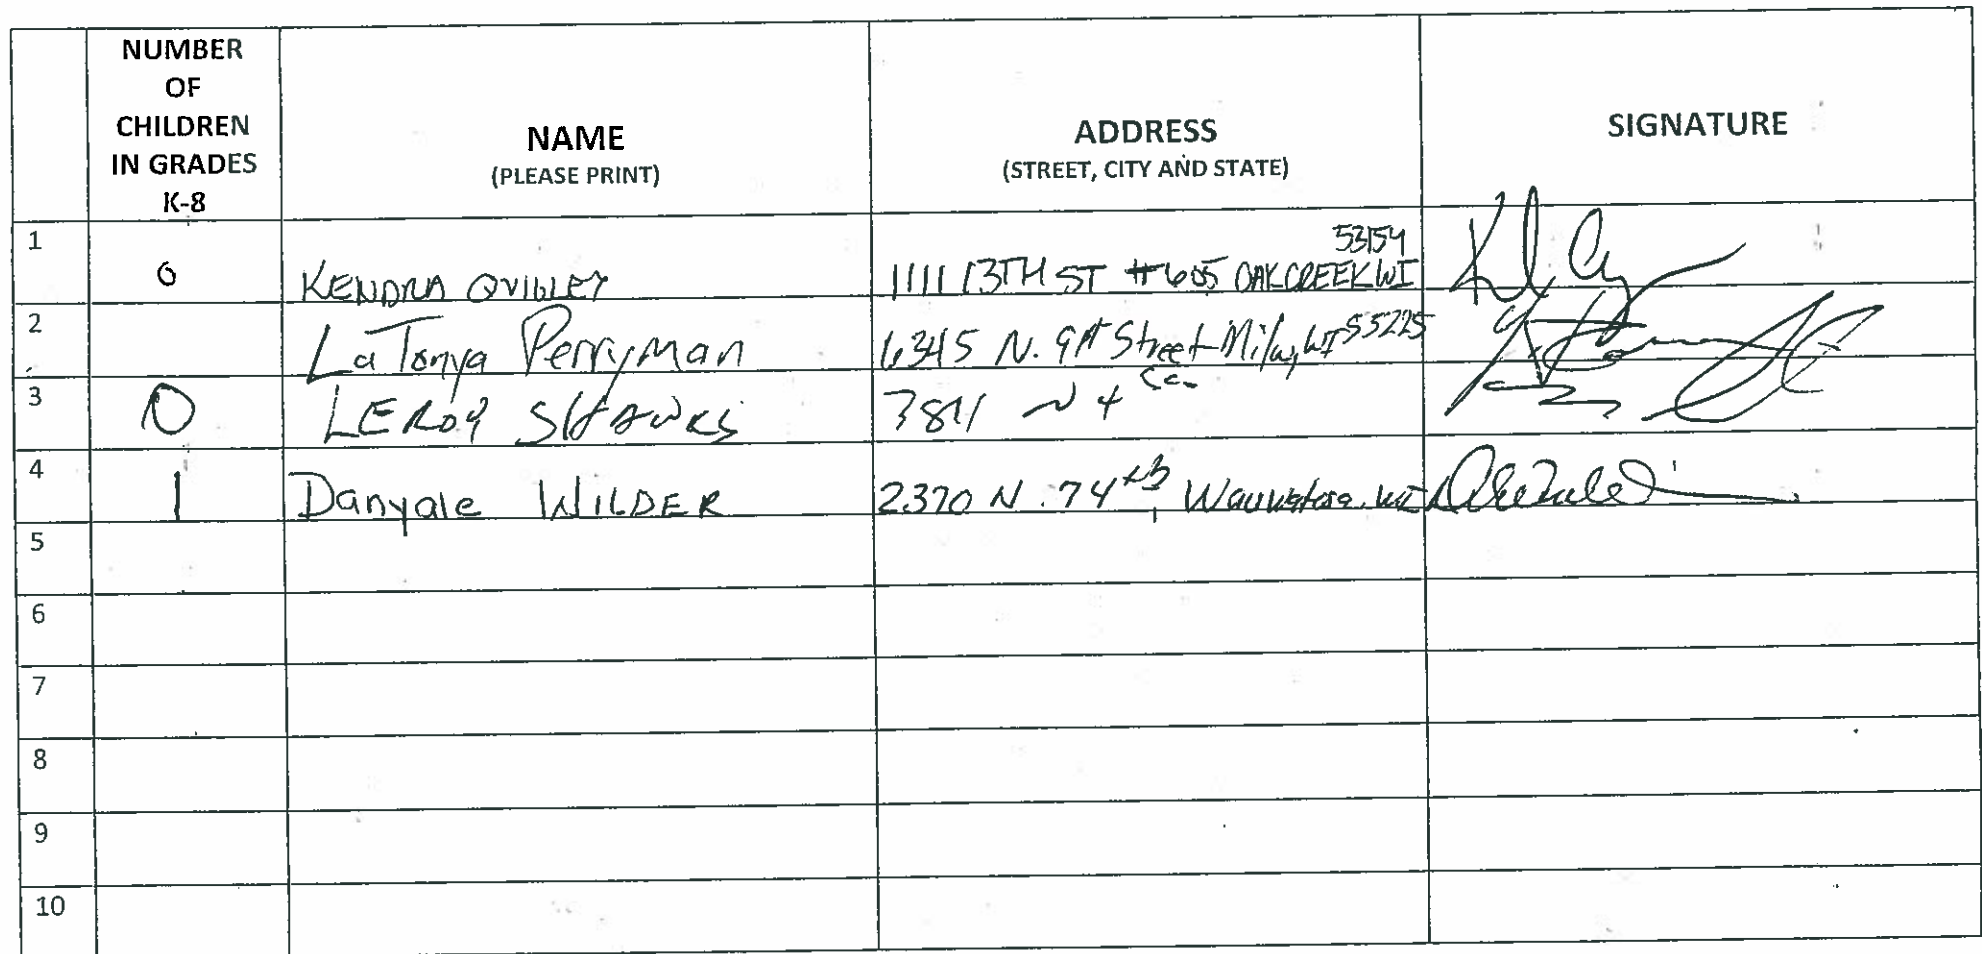 NUMBER
OF
CHILDREN
IN GRADES
K-8
NAME
(PLEASE PRINT)
ADDRESS
(STREET, CITY AND STATE)
SIGNATURE
1 0 KENDRA QUIGLEY 1111 13TH ST #605 OAK CREEK WI 53154
2 LaTonya Perryman 6345 N. 91st Street Milw, WI 53225
3 0 LEROY 3811 N 4
4 1 Danyale WILDER 2370 N. 74th, Wauwatosa. WI
5
6
7
8
9
10